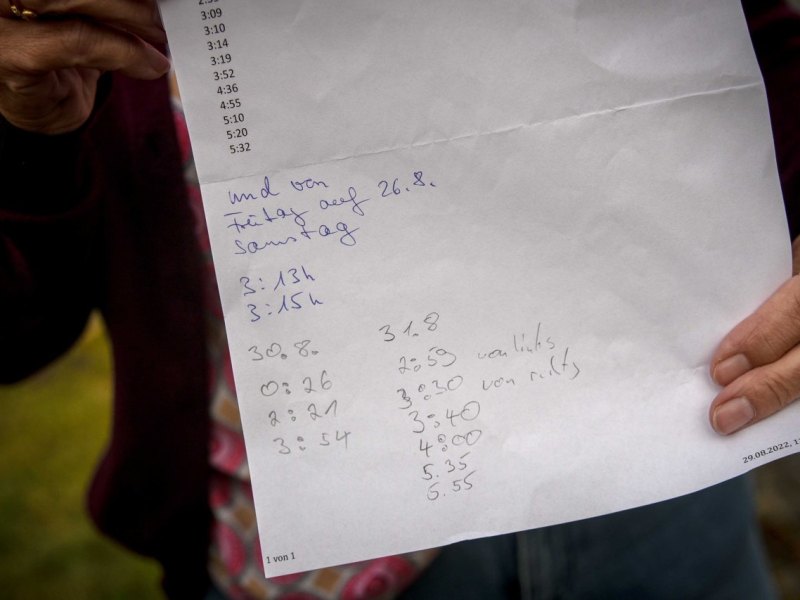 3:09
3:10
3:14
3:19
3:52
4:36
4:55
5:10
5:20
5:32
und von
Freitag auf 26.8.
Samstag
3:13h
3:15h
30.8.
0:26
2:21
3:54
31.8
2:59 von links
3:30 von rechts
3:40
4:00
5.35
5.55
1 von 1
29.08.2022,